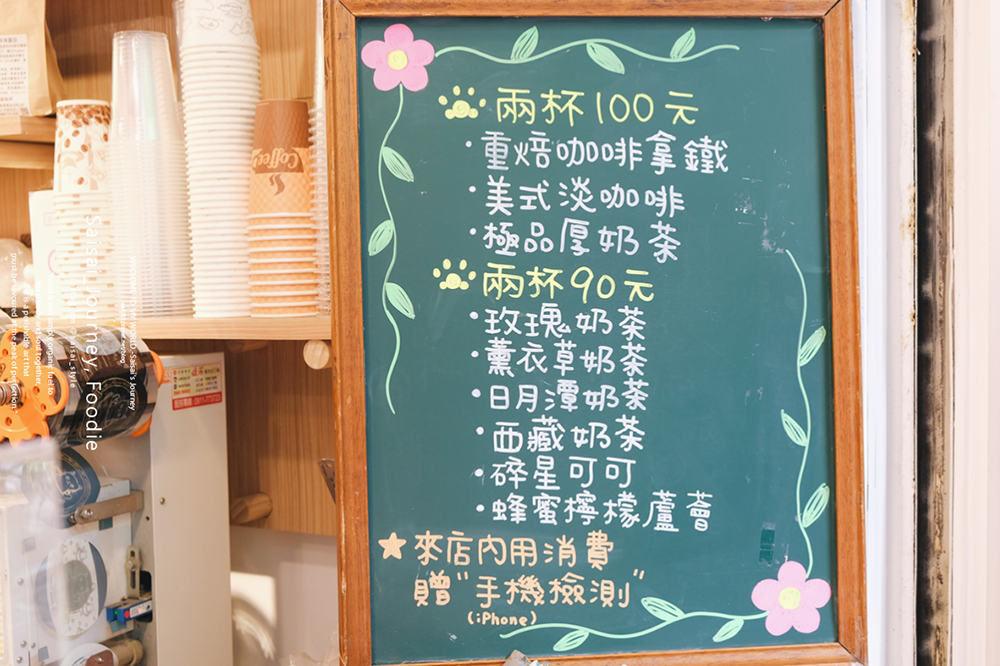 兩杯100元
·重焙咖啡拿鐵
·美式淡咖啡
·極品厚奶茶
兩杯90元
·玫瑰奶茶
·薰衣草奶茶
·日月潭奶茶
·西藏奶茶
·碎星可可
·蜂蜜檸檬蘆薈
來店內用消費
贈"手機檢測"
(iPhone)
Coffee
Saisai Journey, Foodie